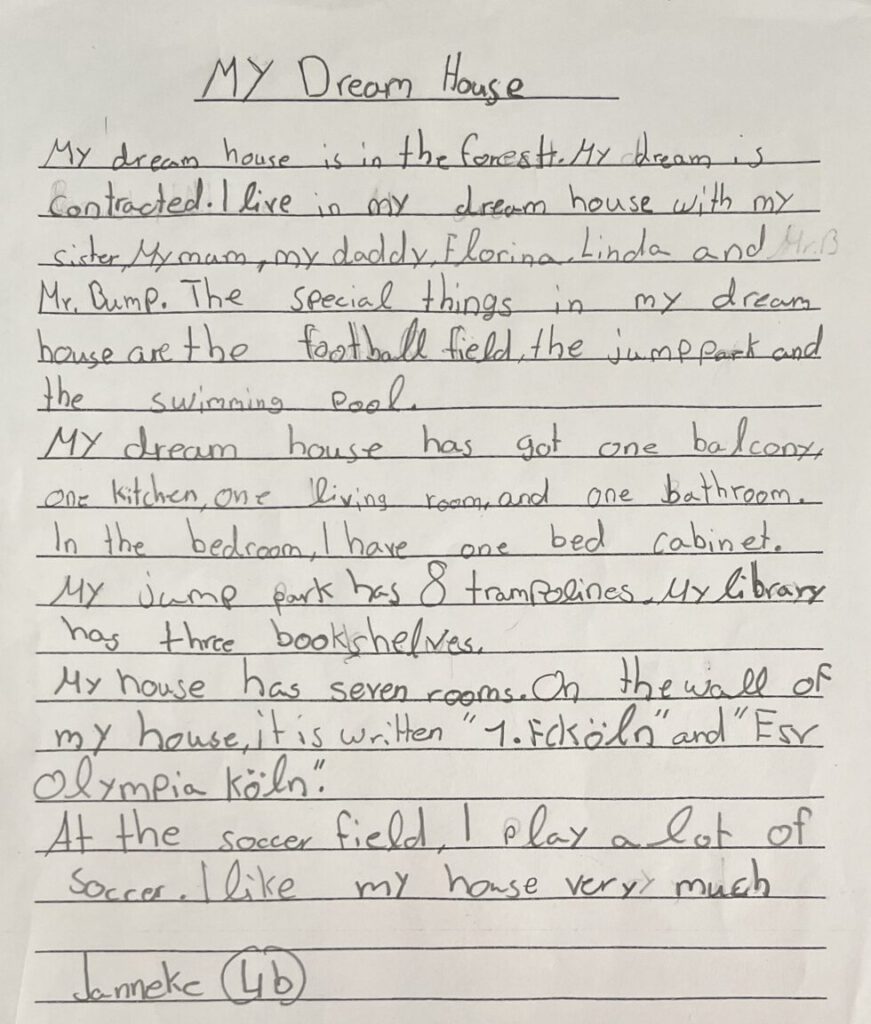 MY Dream House
My dream house is in the forestt. My dream is
contracted. I live in my dream house with my
sister, My mum, my daddy, Florina, Linda and Mr. B
Mr. Bump. The special things in my dream
house are the football field, the jump park and
the swimming pool.
MY dream house has got one balcony,
one kitchen, one living room, and one bathroom.
In the bedroom, I have one bed cabinet.
My jump park has 8 trampolines. My library
has three bookshelves.
My house has seven rooms. On the wall of
my house, it is written "1. Fc köln" and "Esv
Olympia köln".
At the soccer field, I play a lot of
soccer. I like my house very much
Janneke 4b